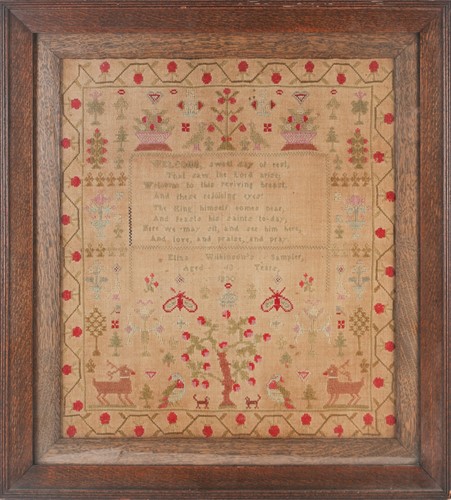 WELCOME, sweet day of rest,
That saw the Lord arise;
Welcome to this reviving breast,
And these rejoicing eyes!
The King himself comes near,
And feasts his saints to-day;
Here we may sit, and see him here,
And love, and praise, and pray.
Eliza Wilkinson's Sampler,
Aged Years,